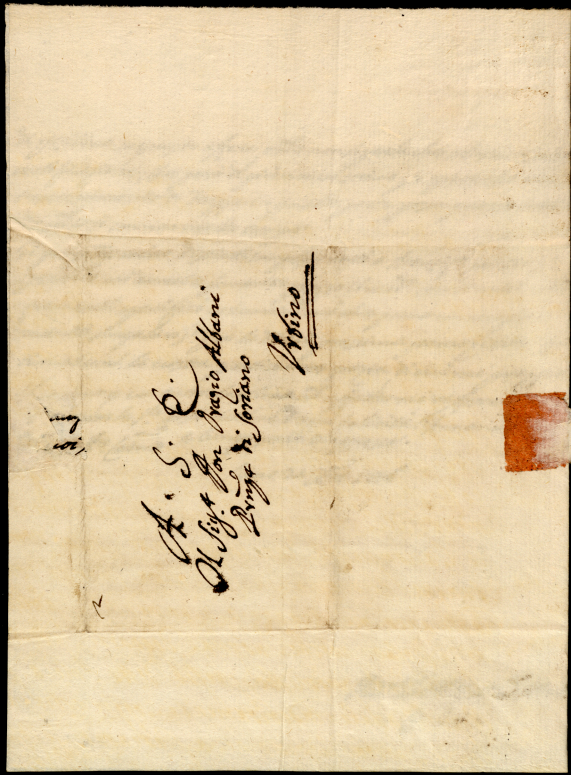 A. S. E.
Il Sig.r Don Orazio Albani
Prnpe di Soriano
Vrbino